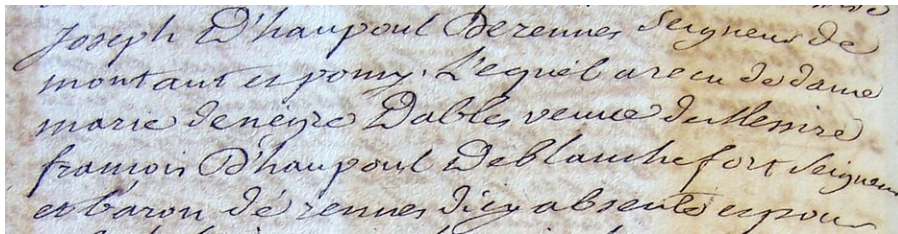 Joseph D'haupoul Derennes Seigneur de
montaut et pomy. Lequel a recu de dame
marie denegre Dables veuve de Messire
francois D'haupoul Deblanchefort Seigneur
et baron dé rennes d'icy absente et pour